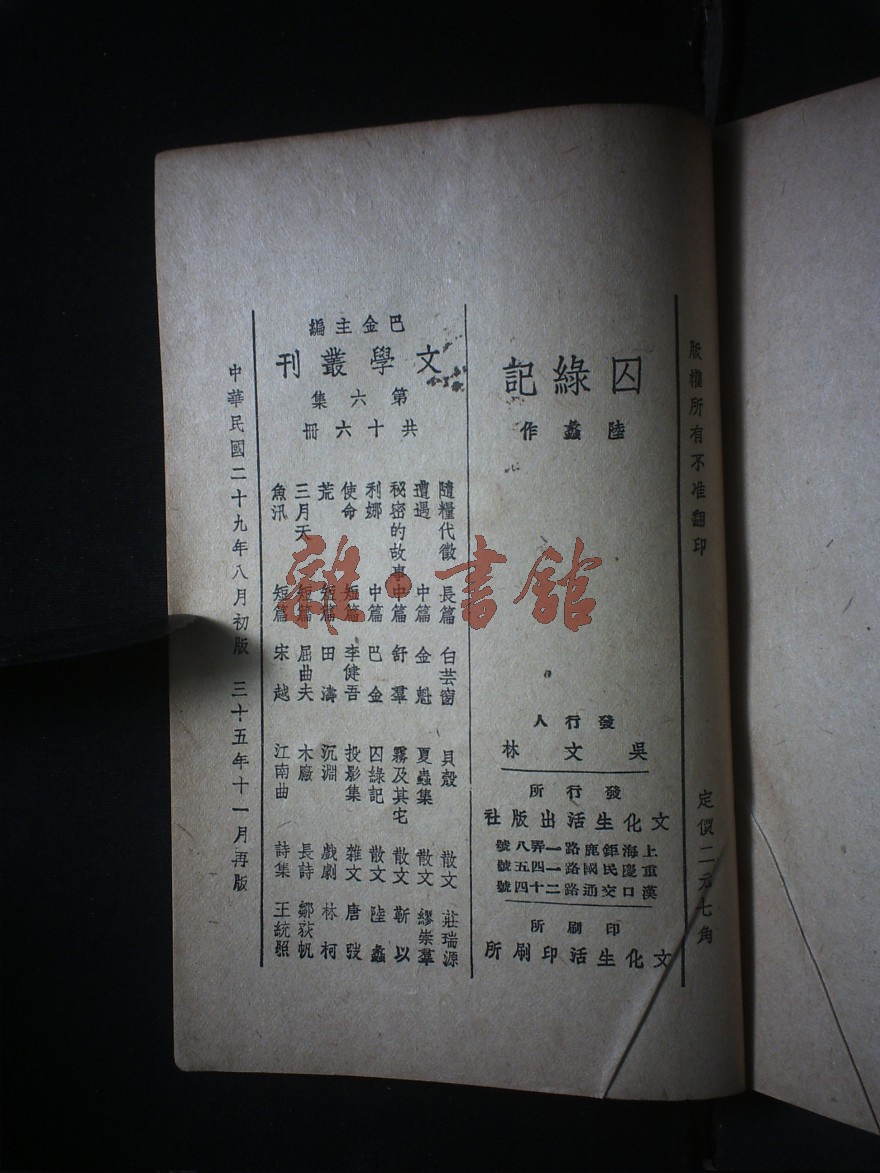 版權所有不准翻印
定價二元七角
囚綠記
陸蠡作
發行人
吳文林
發行所
文化生活出版社
上海鉅鹿路一弄八號
重慶民國路一四五號
漢口交通路二十四號
印刷所
文化生活印刷所
巴金主編
文學叢刊
第六集
共十六冊
隨糧代徵 長篇 白芸窗
遭遇 中篇 金魁
秘密的故事 中篇 舒羣
利娜 中篇 巴金
使命 短篇 李健吾
荒 短篇 田濤
三月天 短篇 屈曲夫
魚汛 短篇 宋越
貝殼 散文 莊瑞源
夏蟲集 散文 繆崇羣
霧及其它 散文 靳以
囚綠記 散文 陸蠡
投影集 雜文 唐弢
沉淵 戲劇 林柯
木廠 長詩 鄒荻帆
江南曲 詩集 王統照
中華民國二十九年八月初版 三十五年十一月再版
雜·書館